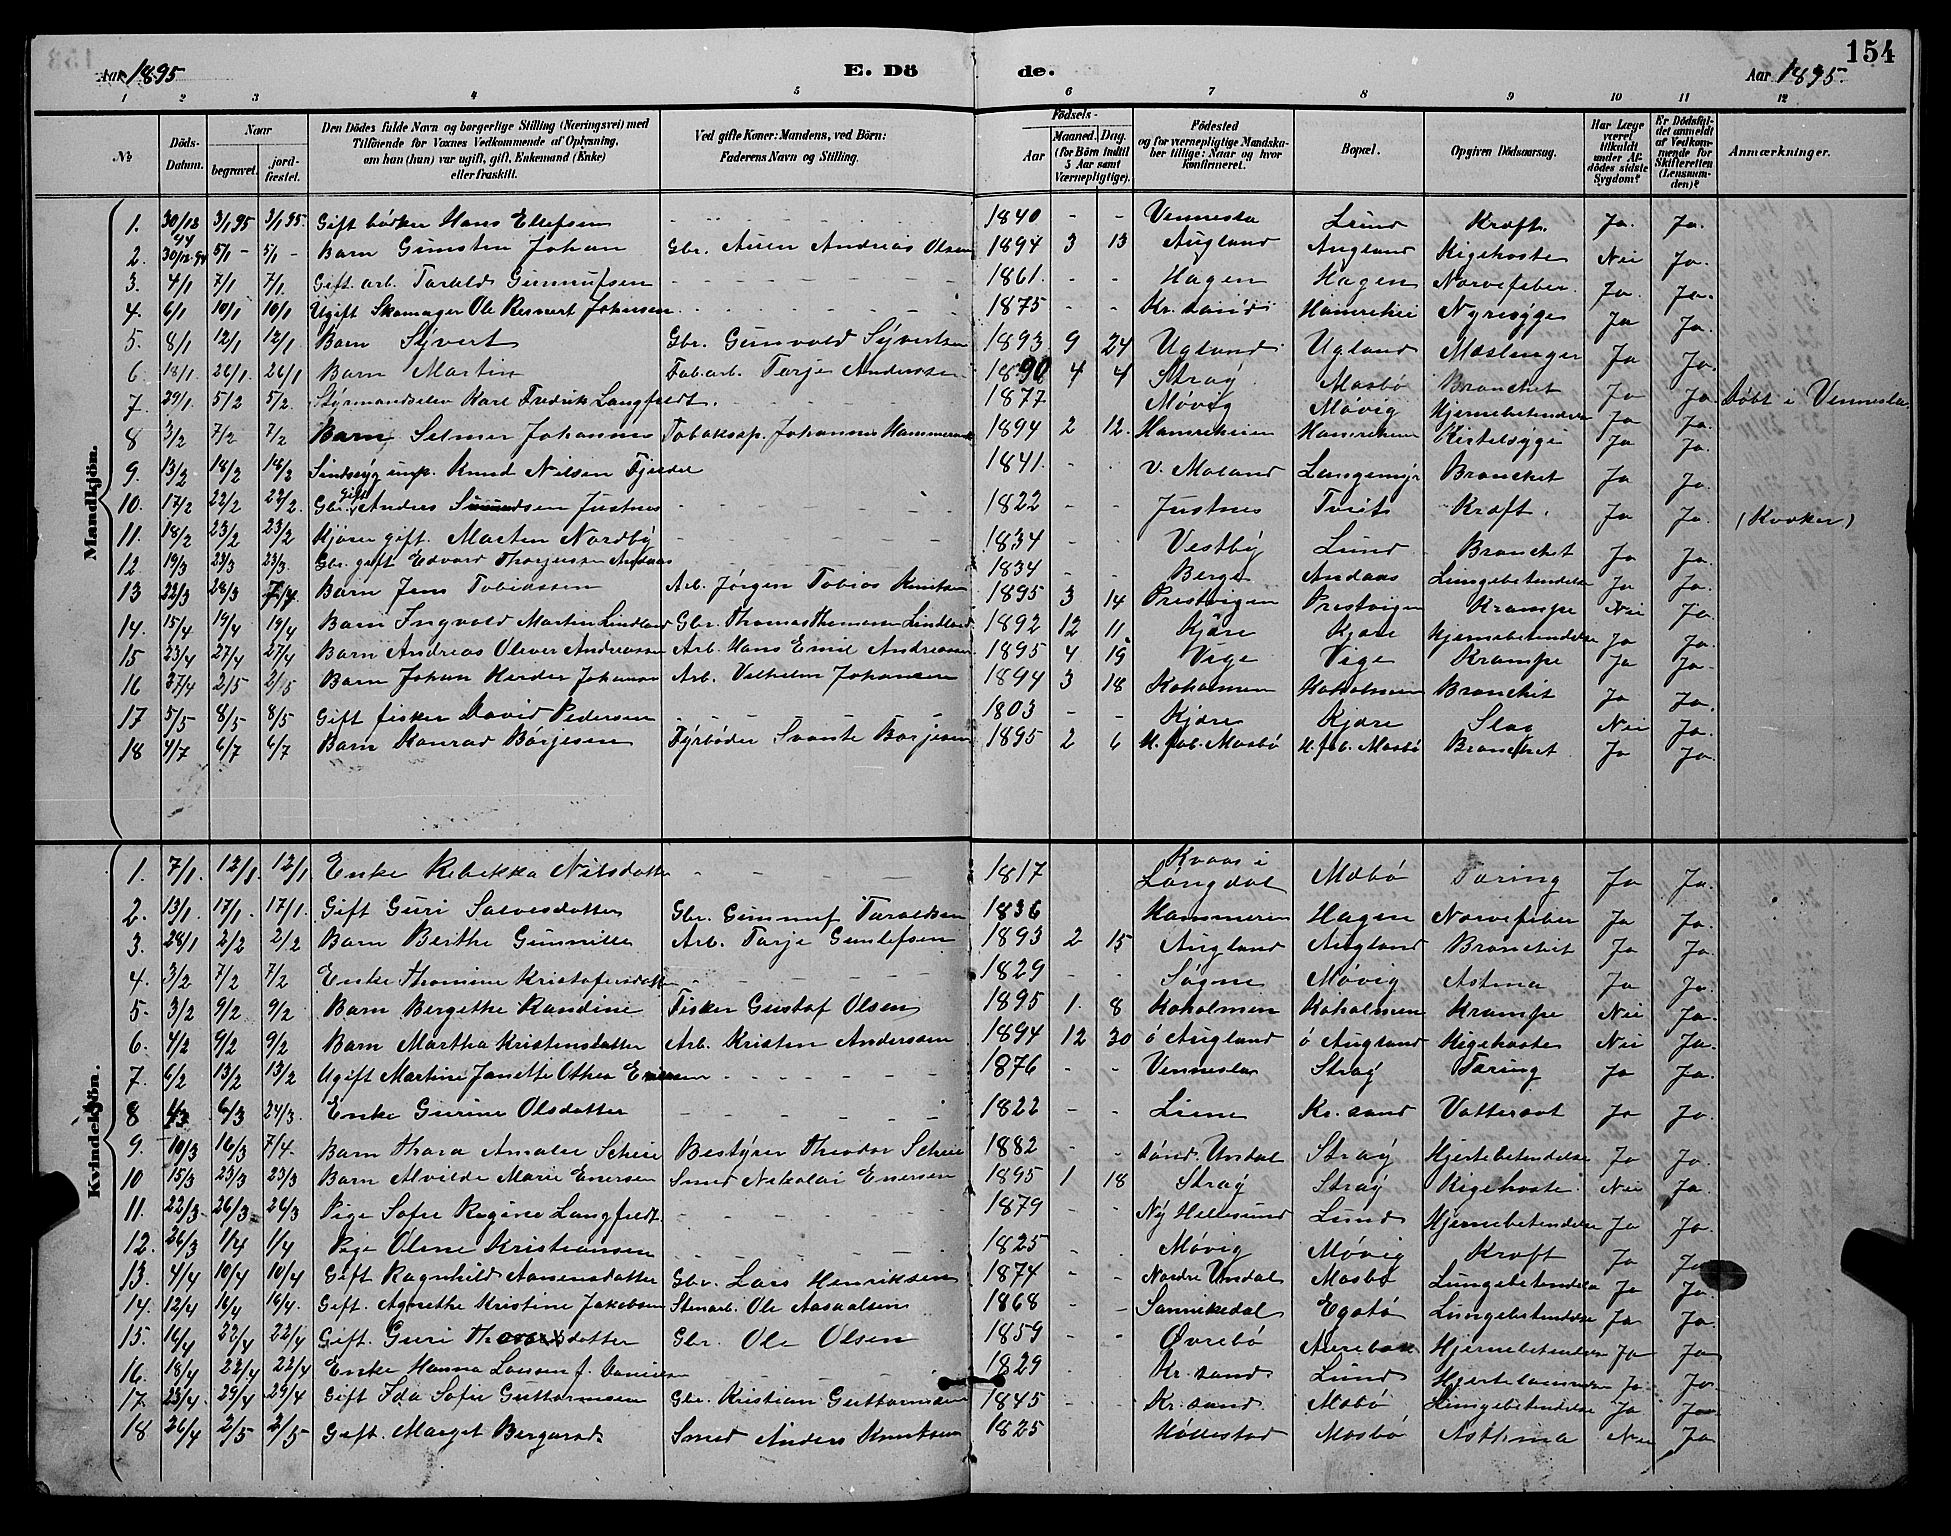 Aar 1895. E. Dö de. Aar 1895. 154
1 2 3 4 5 6 7 8 9 10 11 12
No Döds-Datum. Naar begravet. jord-fæstet. Den Dödes fulde Navn og borgerlige Stilling (Næringsvei) med Tilföiende for Voxnes Vedkommende af Oplysning, om han (hun) var ugift, gift, Enkemand (Enke) eller fraskilt. Ved gifte Koner: Mandens, ved Börn: Faderens Navn og Stilling. Födsels- Aar Maaned. Dag. (for Börn indtil 5 Aar samt Værnepligtige). Födested og for værnepligtige Mandskaber tillige: Naar og hvor konfirmeret. Bopæl. Opgiven Dödsaarsag. Har Læge været tilkaldt under Afdödes sidste Sygdom? Er Dödsfaldet anmeldt af Vedkommende for Skifteretten (Lensmanden)? Anmærkninger.
Mandkjön.
1. 30/12 94 3/1 95 3/1 95. Gift Hans Ellefsen - - - - 1840 - - Vennesla Lund Kræft. Ja. Ja.
2. 30/12 94 5/1 - 5/1 - Barn Gunsten Johan Gbr. Andreas Olsen 1894 3 13 Augland Augland Kigehoste Nei Ja.
3. 4/1 7/1 7/1. Gift. arb. Tarald Gunnufsen - - - - 1861. - - Hagen Hagen Norvefeber. Ja. Ja.
4. 6/1 10/1 10/1 Ugift Skomager Ole Reinert Johnsen - - - - 1875 - - Kr.sand Hamrehei Nyresyge Ja Ja.
5. 8/1 12/1 12/1 Barn Syvert Gbr. Gunvald Syvertsen 1893 9 24 Ugland Ugland Mæslinger Ja Ja.
6 18/1 26/1. 26/1 Barn Martin Fab.arb. Tarje Anderssen 1890 4 4 Stray. Mosbö Bronchit Ja Ja. Döbt i Vennesla.
7. 29/1. 5/2 5/2. Styrmandselev Karl Fredrik Langfeldt. - - - - 1877 - - Møvig Møvig Hjernebetændelse Ja Ja.
8 3/2 7/2 7/2 Barn Selmer Johannes Johannes 1894 2 12. Hamreheien Hamreheien Kirtelsyge Ja Ja.
9. 13/2 18/2 18/2 Sindssyg Knud Nilsen Fjeldet 1841. - - V. Moland Langemyr Bronchit Ja Ja.
10. 17/2 22/2 22/2. Gbr. gift Anders Justnes - - - - 1822 - - Justnes Tveit Kræft. Ja Ja. (Kvæker)
11. 18/2 23/2 23/2 gift. Morten Nordby - - - - 1834 - - Vestby Lund Bronchit Ja Ja.
12. 19/3 23/3 23/3. Gbr. gift Edvard Andaas 1834 - - Berge Andaas Lungebetændelse Ja Ja.
13 22/3 28/3 7/4 Barn Jens Tobiassen Arb. Jørgen Tobias Knutsen 1895 3 14 Prestvigen Prestvigen Krampe Nei Ja.
14. 15/4 19/4 19/4 Barn Ingvald Martin Lindland Gbr. Thomas Thomassen Lindland 1892 12 11 Kjære Kjære Hjernebetændelse Ja Ja.
15 23/4 27/4 27/4 Barn Andreas Oliver Andreassen Arb. Hans Emil Andreassen 1895 4 19 Vige Vige Krampe Ja Ja.
16 27/4 2/5 2/5 Barn Johan Johansen Arb. Vilhelm Johansen 1894 3 18 Koholmen Koholmen Bronchit Ja Ja.
17 5/5 8/5 8/5 Gift fisker David Pedersen - - - - 1803 - - Kjære Kjære Slag Nei Ja.
18 4/7 6/7 6/7 Barn Konrad Börjesen Fyrböder Svante Borjesen 1895 2 6 H. fab. Mosbö H. fab. Mosbö Bronchit Ja Ja.
Kvindekjön.
1. 7/1. 12/1. 12/1 Enke Rebekka Nilsdatter - - - - 1817 Kvaas i Lÿngdal Mosbö Tæring Ja Ja.
2. 13/1 17/1. 17/1. Gift Guri Salvesdatter Gbr. Gunnuf Taraldsen 1836 Hammeren Hagen Norvefeber Ja Ja.
3. 28/1 2/2 2/2 Barn Berthe Gunnille Arb. Tarje Gunlefsen 1893 2 15 Augland Augland Bronchit Ja Ja.
4. 3/2 7/2 7/2 Enke Thomine Kristofersdatter - - - - 1829 - - Søgne Møvig Astma Ja Ja.
5. 3/2 9/2 9/2 Barn Bergithe Randine Fisker Gustaf Olsen 1895 1. 8 Koholmen Koholmen Krampe Nei Ja.
6. 4/2 9/2 9/2 Barn Martha Kristensdatter Arb. Kristen Anderssen 1894 12 30 ö Augland ö Augland Kigehoste Nei Ja.
7. 6/2 13/2 13/2 Ugift Martine Janette Othea - - - - 1876 - - Vennesla Stray Tæring Ja Ja.
8 4/3 6/3 24/3. Enke Gurine Olsdatter - - - - 1822 - - Kr.sand Vattersot Ja Ja.
9. 10/3 16/3 7/4. Barn Thora Amalie Scheie Bestyrer Theodor Scheie 1882 - - Undal Stray Hjertebetændelse Ja Ja.
10 15/3 23/3 23/3 Barn Alvilde Marie Enersen Smed Nikolai Enersen 1895 1 18 Stray Stray Kigehoste. Nei Ja.
11. 22/3. 26/3. 26/3 Pige Sofie Regine Langfeldt. - - - - 1879 - - Ny Hellesund Lund Hjernebetændelse Ja Ja.
12. 26/3 1/4 1/4 Pige Olene Kristiansen - - - - 1825 - - Møvig Møvig Kræft Ja Ja.
13. 4/4 10/4 10/4 Gift Ragnhild Aanensdatter Gbr. Lars Henriksen 1874 - - Nordre Undal Mosbö Lungebetændelse Ja Ja.
14. 12/4 16/4 16/4. Gift. Agnethe Kristine Jakobsen Stenarb. Ole 1868 - - Sannikedal Lungebetændelse Ja Ja.
15. 16/4 22/4 22/4 Gift. Guri Gbr. Ole Olsen 1859 - - Øvrebö Hjernebetændelse Ja Ja
16. 18/4 22/4 22/4 Enke Hanna Larsen f. - - - - 1829 - - Kr.sand Lund Ja. Ja.
17. 23/4. 29/4 29/4 Gift Ida Sofie Guttormsen Gbr. Kristian Guttormsen 1845 - - Kr.sand Mosbö Lungebetændelse Ja Ja
18 26/4 2/5 2/5 Gift. Marget Smed Anders Knutsen 1825 Mosbö Asthma Nei Ja